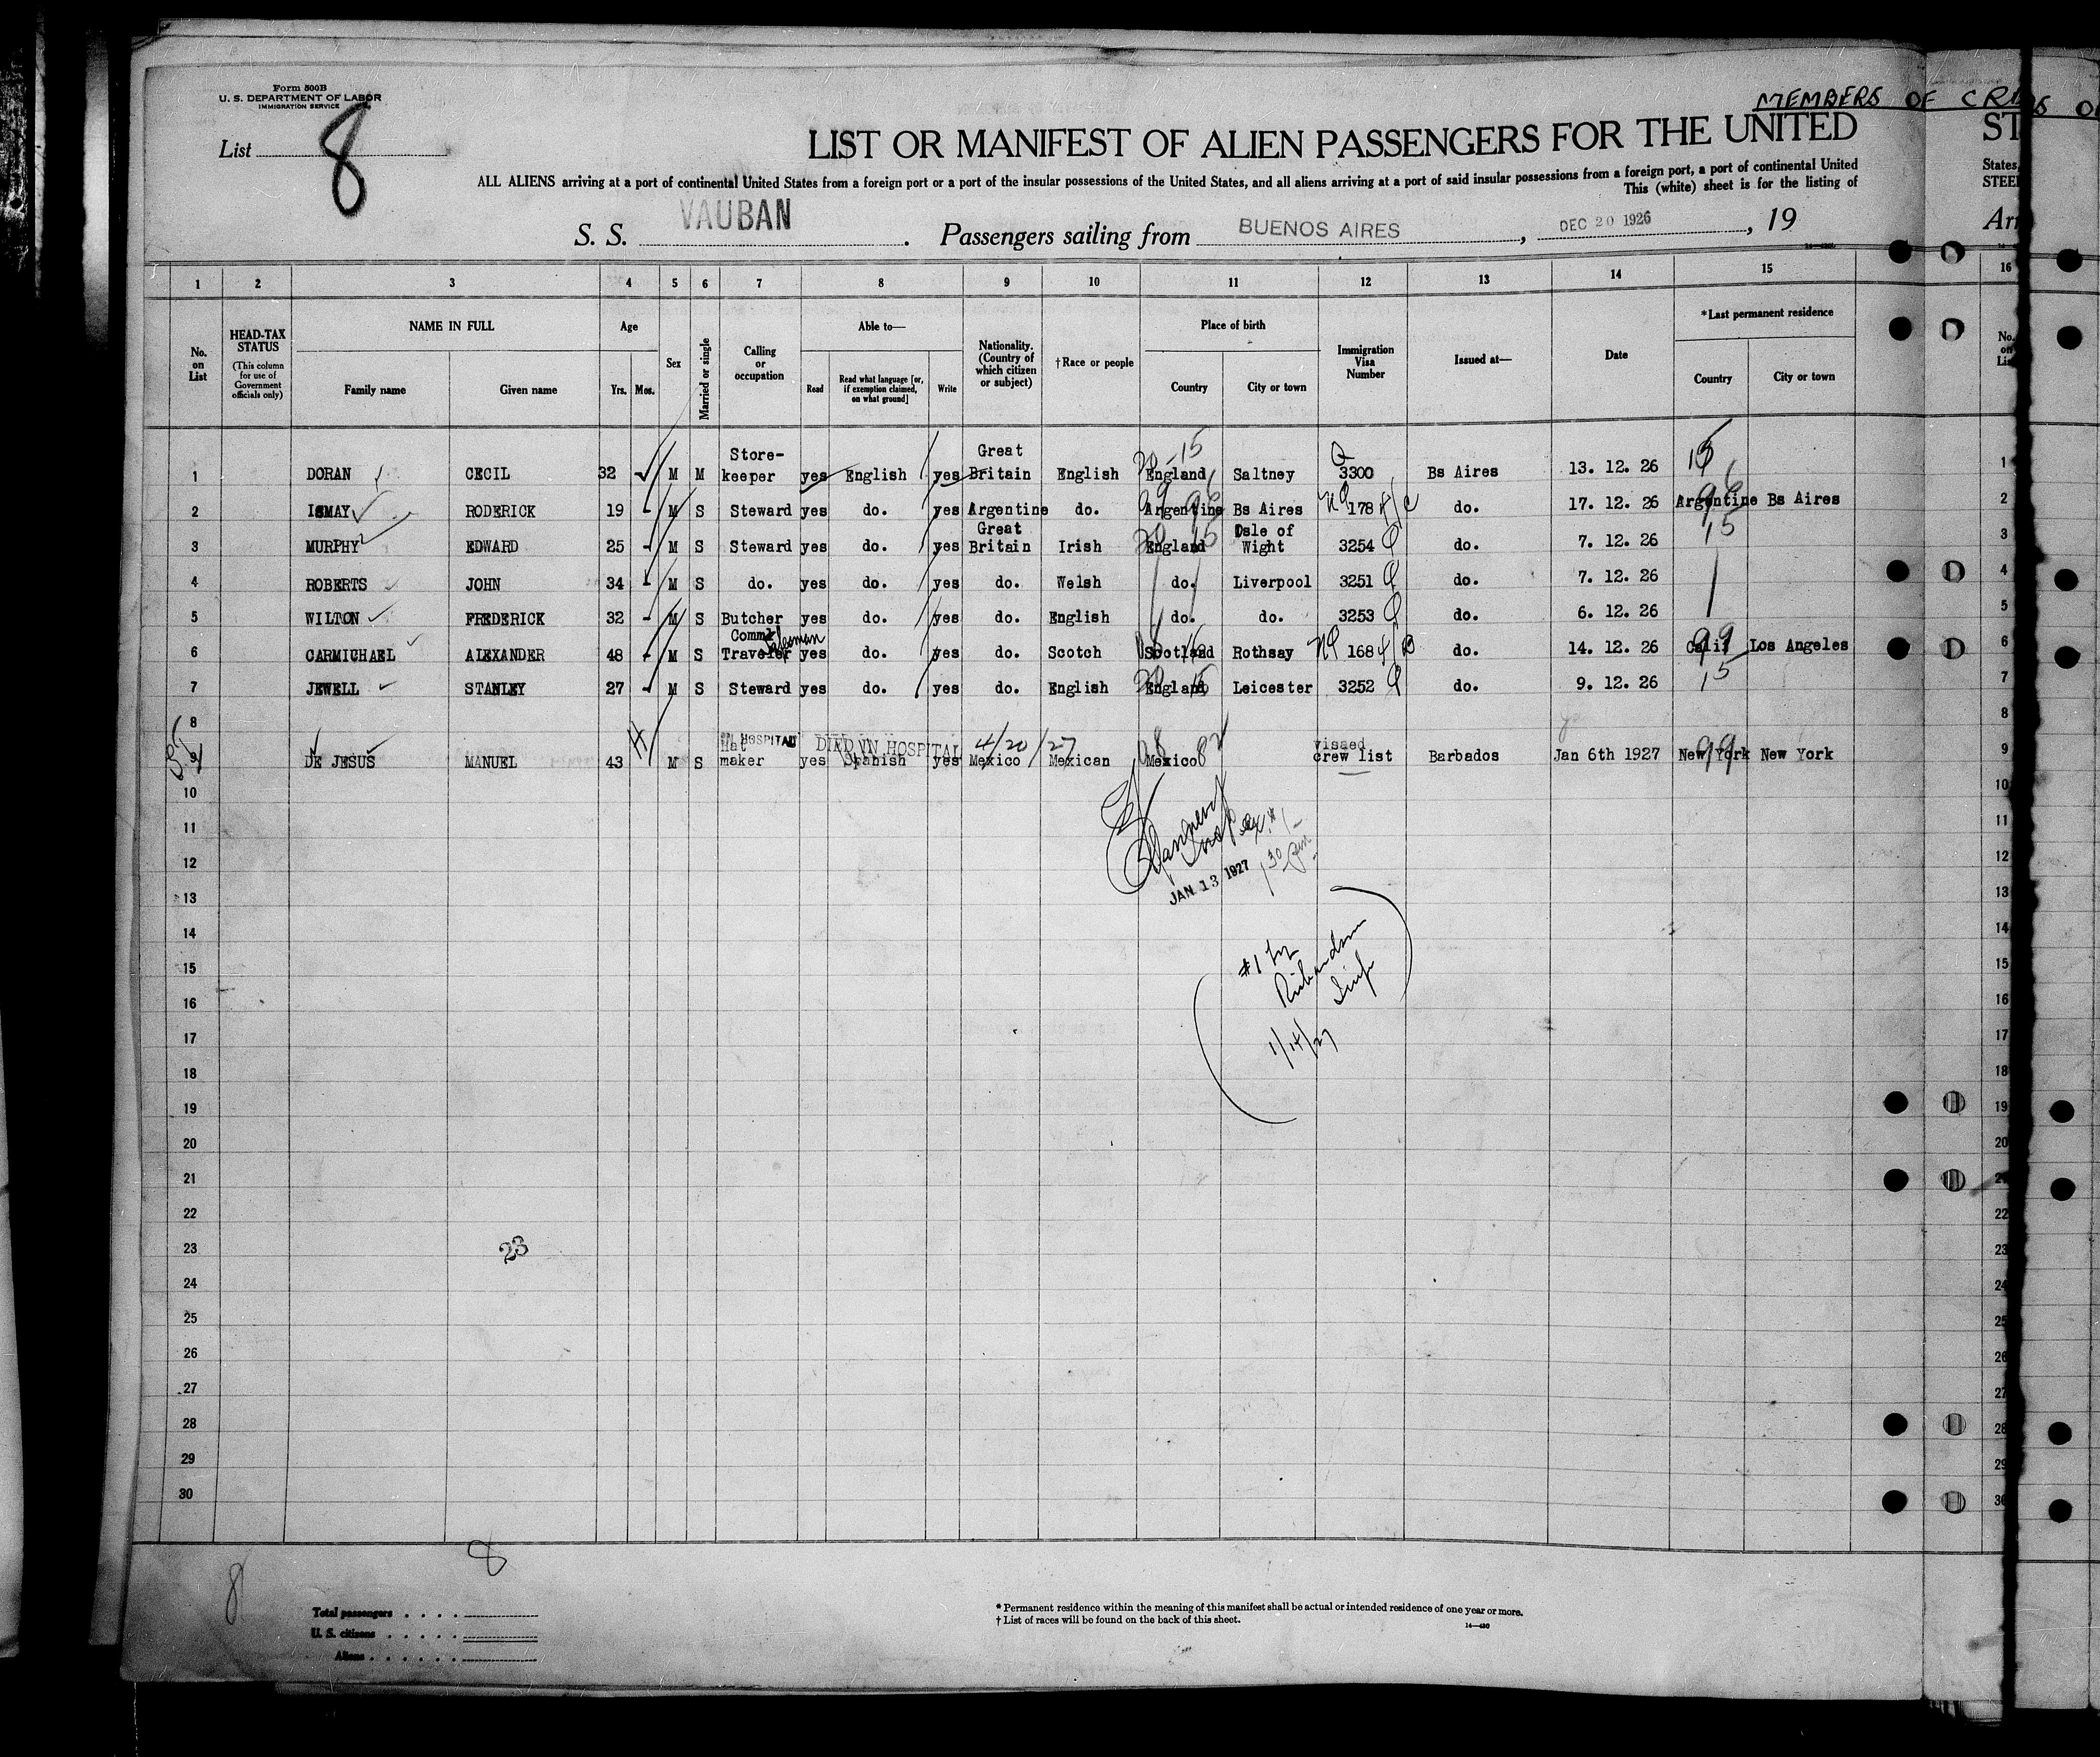 Form 500B
U. S. DEPARTMENT OF LABOR
IMMIGRATION SERVICE
MEMBERS OF CRE
List 8
LIST OR MANIFEST OF ALIEN PASSENGERS FOR THE UNITED ST
ALL ALIENS arriving at a port of continental United States from a foreign port or a port of the insular possessions of the United States, and all aliens arriving at a port of said insular possessions from a foreign port, a port of continental United States,
This (white) sheet is for the listing of STEE
S. S. VAUBAN. Passengers sailing from BUENOS AIRES, DEC 20 1926, 19 Arr
1 2 3 4 5 6 7 8 9 10 11 12 13 14 15 16
No. on List
HEAD-TAX STATUS
(This column for use of Government officials only)
NAME IN FULL
Family name Given name
Age
Yrs. Mos.
Sex
Married or single
Calling or occupation
Able to—
Read
Read what language [or, if exemption claimed, on what ground]
Write
Nationality. (Country of which citizen or subject)
†Race or people
Place of birth
Country City or town
Immigration Visa Number
Issued at—
Date
*Last permanent residence
Country City or town
No. on Li
1 DORAN CECIL 32 M M Store-keeper yes English yes Great Britain English England Saltney 3300 Bs Aires 13. 12. 26 15 1
2 ISMAY RODERICK 19 - M S Steward yes do. yes Argentine do. Argentine Bs Aires 178 do. 17. 12. 26 Argentine Bs Aires 2
3 MURPHY EDWARD 25 - M S Steward yes do. yes Great Britain Irish England Isle of Wight 3254 do. 7. 12. 26 15 3
4 ROBERTS JOHN 34 - M S do. yes do. yes do. Welsh do. Liverpool 3251 do. 7. 12. 26 4
5 WILTON FREDERICK 32 - M S Butcher yes do. yes do. English do. do. 3253 do. 6. 12. 26 5
6 CARMICHAEL ALEXANDER 48 - M S Comml Traveler Salesman yes do. yes do. Scotch Scotland Rothsay 168 do. 14. 12. 26 Calif Los Angeles 6
7 JEWELL STANLEY 27 - M S Steward yes do. yes do. English England Leicester 3252 do. 9. 12. 26 15 7
8 8
IN HOSPITAL DIED IN HOSPITAL 4/20/27
9 DE JESUS MANUEL 43 M S Hat maker yes Spanish yes Mexico Mexican Mexico vissed crew list Barbados Jan 6th 1927 New York New York 9
10 10
11 11
12 12
JAN 13 1927
13 13
14 14
#1 by
Richardson
Insp
1/14/27
15 15
16 16
17 17
18 18
19 19
20 20
21 21
22 22
23 23 23
24 24
25 25
26 26
27 27
28 28
29 29
30 30
8
8
Total passengers
U. S. citizens
Aliens
* Permanent residence within the meaning of this manifest shall be actual or intended residence of one year or more.
† List of races will be found on the back of this sheet.
14—430